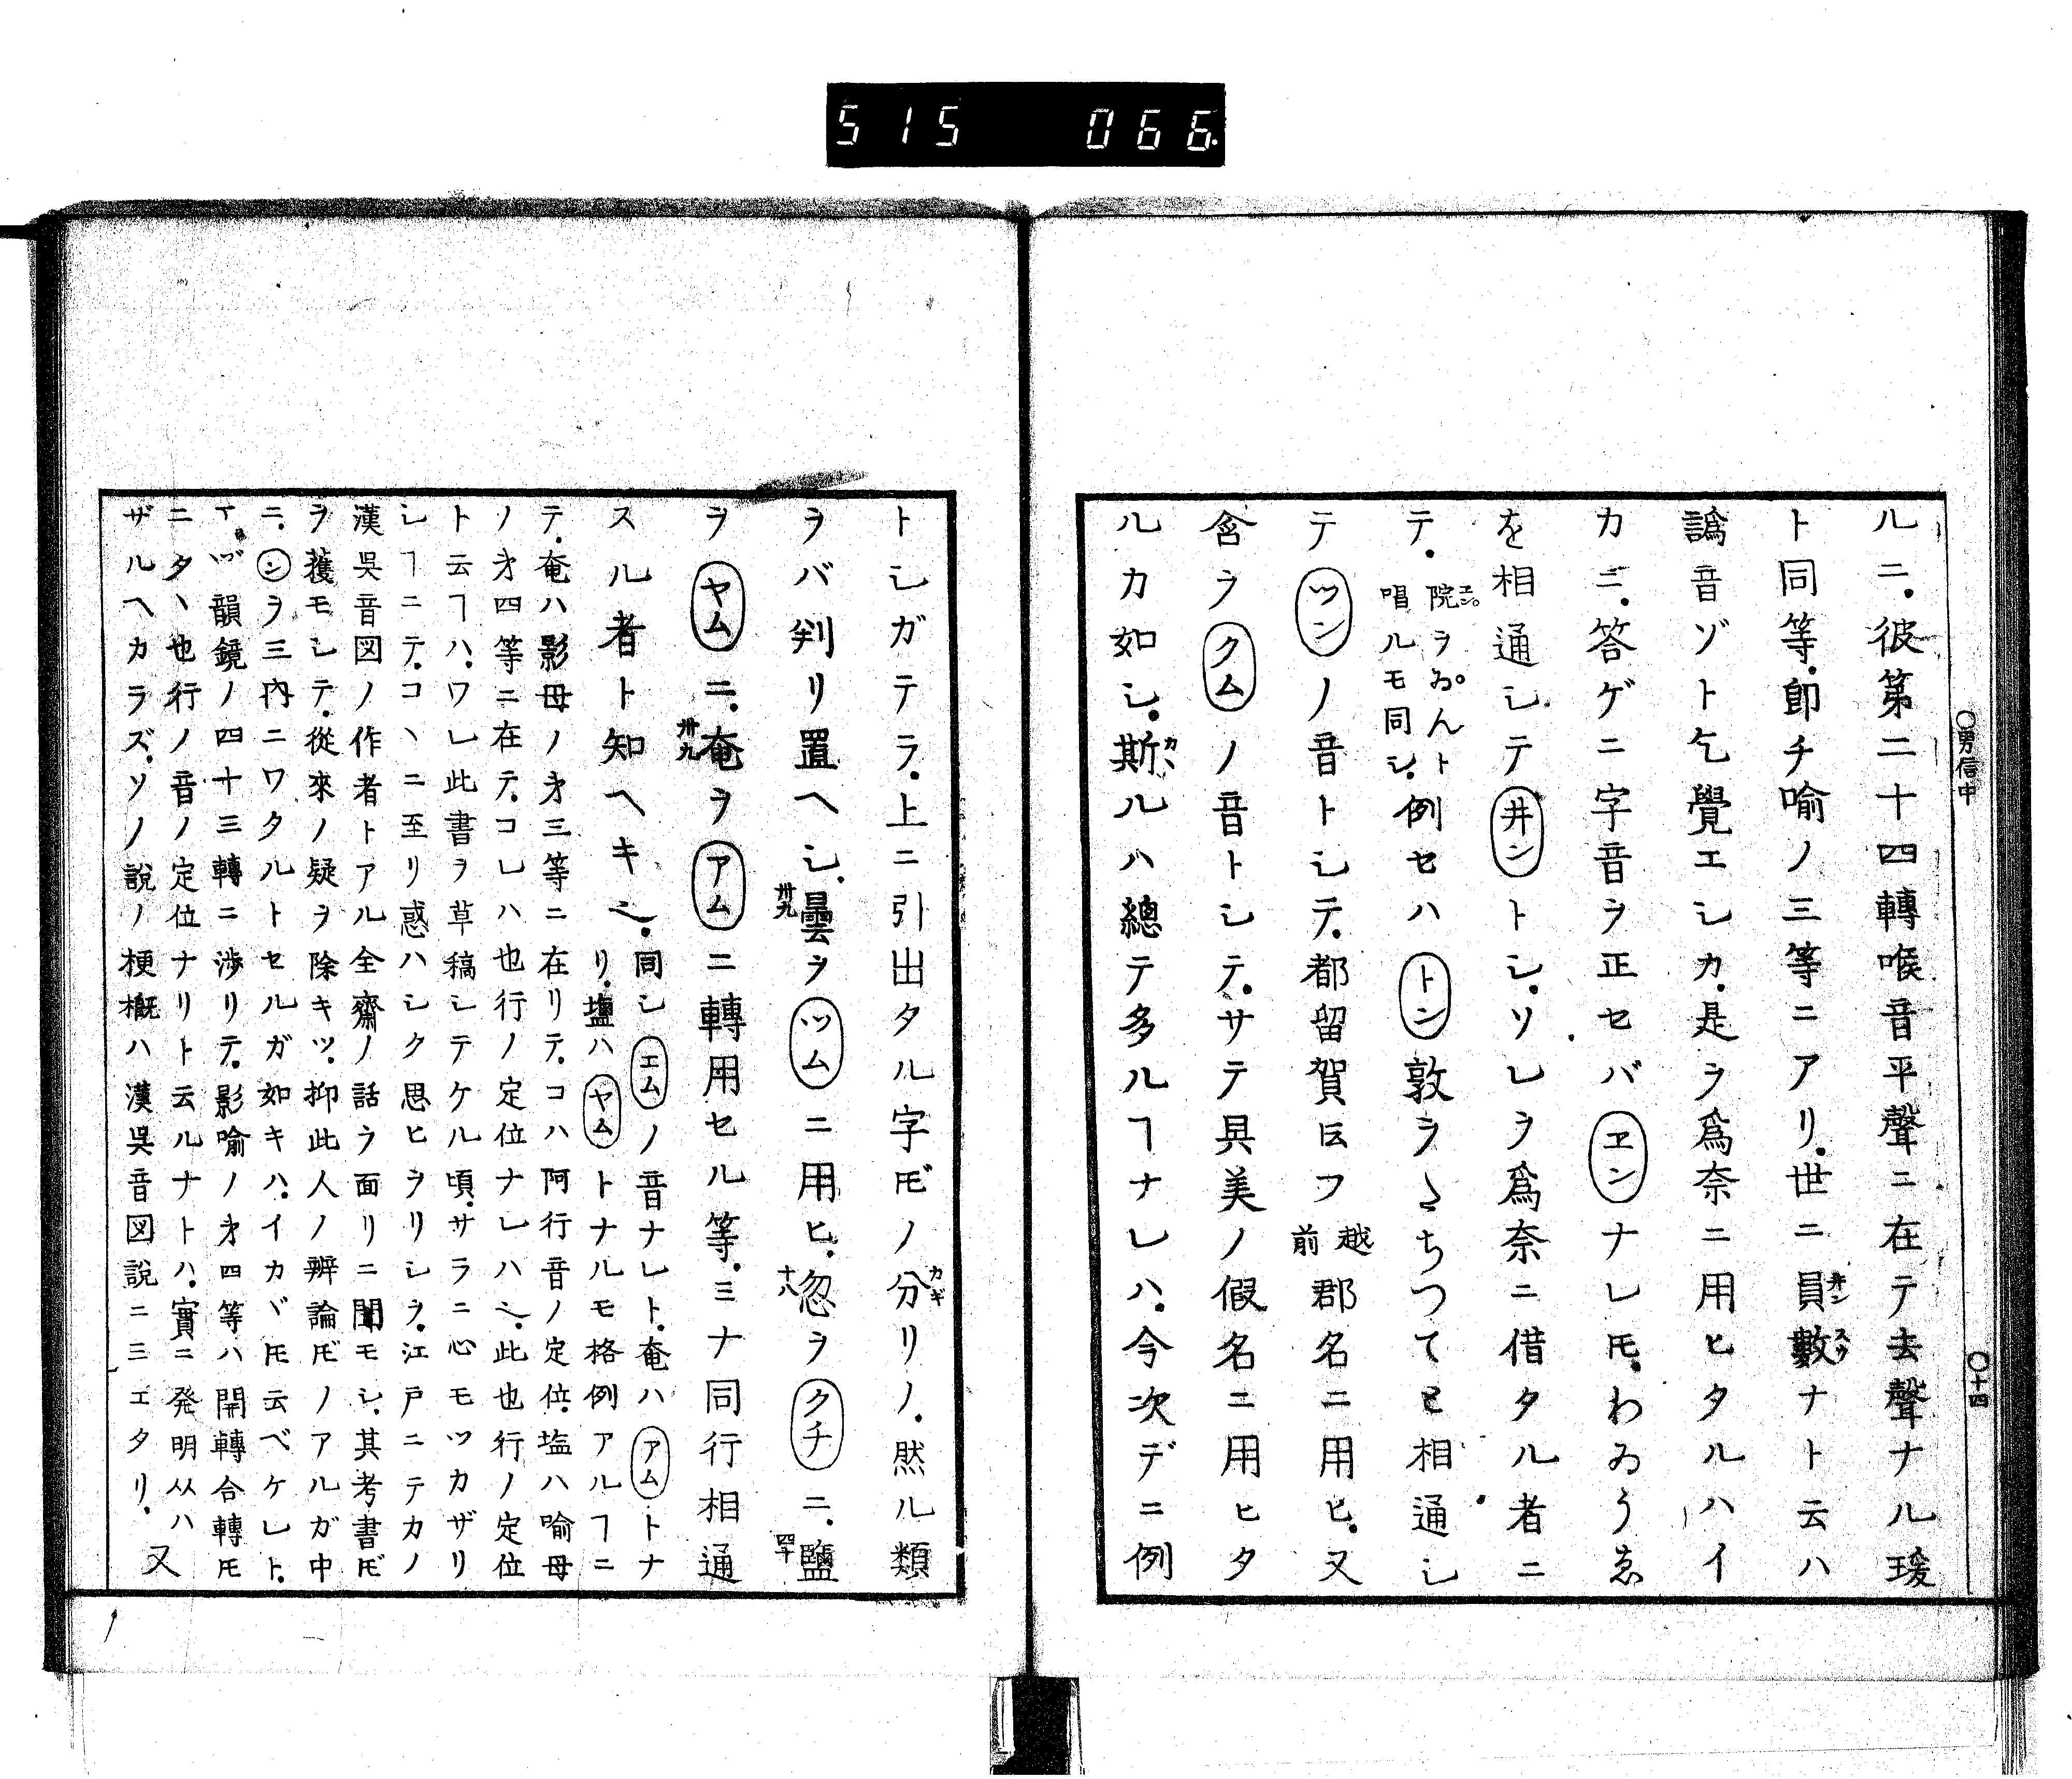 515 066
〇男信中
〇十四
ルニ。彼第二十四轉喉音平聲ニ在テ去聲ナル瑗
ト同等。卽チ喩ノ三等ニアリ。世ニ員數ナト云ハ
井ン スウ
譌音ゾト乞覺エシカ。是ヲ爲奈ニ用ヒタルハイ
カニ。答ゲニ字音ヲ正セバヱンナレ𪜈。わゐうゑ
を相通シテ井ントシ。ソレヲ爲奈ニ借タル者ニ
テ。院ヲゐんト
エン。
唱ルモ同シ。例セハトン敦ヲたちつてと相通シ
テツンノ音トシテ。都留賀云フ越前郡名ニ用ヒ。又
含ヲクムノ音トシテ。サテ具美ノ假名ニ用ヒタ
ルカ如シ。斯ルハ總テ多ルヿナレハ。今次デニ例
カヽ
トシガテラ。上ニ引出タル字𪜈ノ分リノ。然ル類
カギ
ヲバ判リ置ヘシ。曇ヲツムニ用ヒ。忽ヲクチニ。鹽
卅九 十八 四十
ヲヤムニ。奄ヲアムニ轉用セル等。ミナ同行相通
卅九
スル者ト知ヘキ也。同シエムノ音ナレト。奄ハアムトナ
リ。塩ハヤムトナルモ格例アルヿニ
テ。奄ハ影母ノ才三等ニ在リテ。コハ阿行音ノ定位。塩ハ喩母
ノ才四等ニ在テ。コレハ也行ノ定位ナレハ也。此也行ノ定位
ト云ヿハ。ワレ此書ヲ草稿シテケル頃。サラニ心モツカザリ
シヿニテ。コヽニ至リ惑ハシク思ヒヲリシヲ。江戸ニテカノ
漢呉音図ノ作者トアル全齋ノ話ヲ面リニ聞モシ。其考書𪜈
ヲ獲モシテ。從來ノ疑ヲ除キツ。抑此人ノ辨論𪜈ノアルガ中
ニ。ンヲ三內ニワタルトセルガ如キハ。イカヾ𪜈云ベケレト。
韻鏡ノ四十三轉ニ涉リテ。影喩ノ才四等ハ開轉合轉𪜈
ニタヽ也行ノ音ノ定位ナリト云ルナトハ。實ニ発明ハ
ザルヘカラズ。ソノ說ノ梗槪ハ漢呉音図說ニミエタリ。又